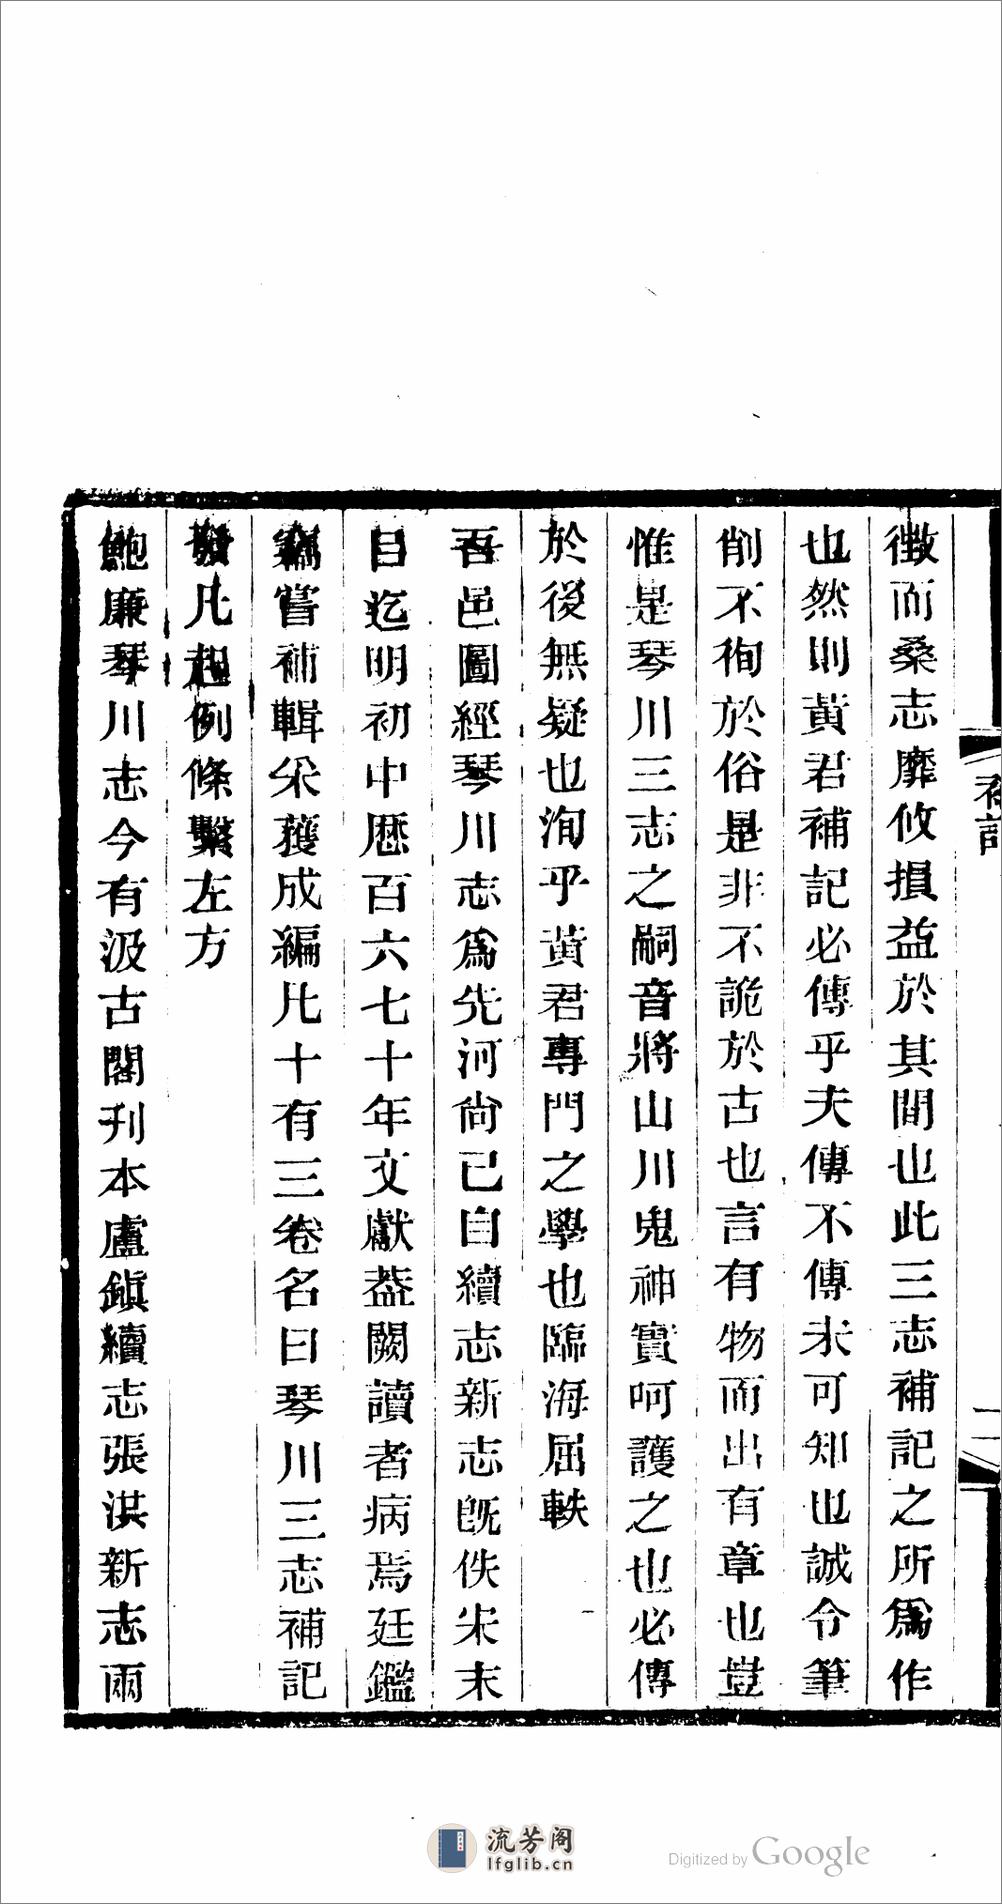 徴而桑志靡攸損益於其間也此三志補記之所爲作
也然則黃君補記必傳乎夫傳不傳未可知也誠令筆
削不徇於俗是非不詭於古也言有物而出有章也豈
惟是琴川三志之嗣音將山川鬼神實呵護之也必傳
於後無疑也洵乎黃君專門之學也臨海屈軼
吾邑圖經琴川志爲先河尙已自續志新志旣佚宋末
目迄明初中歷百六七十年文獻葢闕讀者病焉廷鑑
竊嘗補輯采獲成編凡十有三卷名曰琴川三志補記
發凡起例條繫左方
鮑廉琴川志今有汲古閣刋本盧鎭續志張洪新志兩
補記
二
流芳阁
lfglib.cn
Digitized by Google